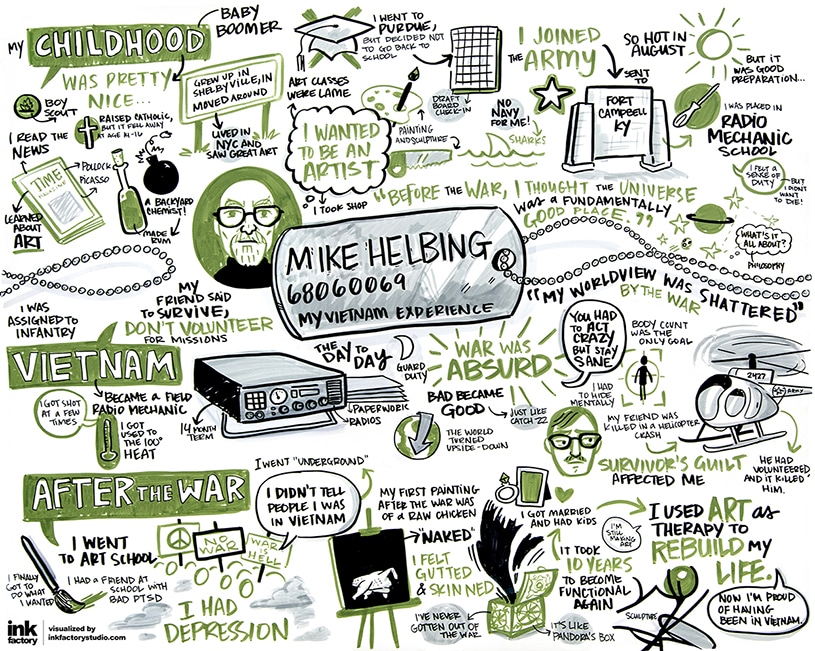 MY CHILDHOOD
WAS PRETTY
NICE...
BABY
BOOMER
BOY
SCOUT
RAISED CATHOLIC,
BUT IT FELL AWAY
AT AGE 14-16
GREW UP IN
SHELBYVILLE, IN
MOVED AROUND
LIVED IN
NYC AND
SAW GREAT ART
I READ THE
NEWS
TIME
MAGAZINE
POLLOCK
PICASSO
LEARNED
ABOUT
ART
A BACKYARD
CHEMIST!
MADE
RUM
I WENT TO
PURDUE,
BUT DECIDED NOT
TO GO BACK TO
SCHOOL
ART CLASSES
WERE LAME
I WANTED
TO BE AN
ARTIST
PAINTING
AND SCULPTURE
I TOOK SHOP
DRAFT
BOARD
CHECK-IN
NO
NAVY
FOR ME!
SHARKS
I JOINED
THE ARMY
SENT
TO
FORT
CAMPBELL
KY
SO HOT IN
AUGUST
BUT IT
WAS GOOD
PREPARATION...
I WAS PLACED IN
RADIO
MECHANIC
SCHOOL
I FELT A
SENSE OF
DUTY
BUT
I DIDN'T
WANT
TO DIE!
"BEFORE THE WAR, I THOUGHT THE UNIVERSE
WAS A FUNDAMENTALLY
GOOD PLACE."
WHAT'S IT
ALL ABOUT?
PHILOSOPHY
MIKE HELBING
68060069
MY VIETNAM EXPERIENCE
"MY WORLDVIEW WAS SHATTERED"
BY THE WAR
I WAS
ASSIGNED TO
INFANTRY
MY
FRIEND SAID
TO SURVIVE,
DON'T VOLUNTEER
FOR MISSIONS
VIETNAM
I GOT SHOT
AT A FEW
TIMES
BECAME A FIELD
RADIO MECHANIC
I GOT
USED TO
THE 100°
HEAT
14 MONTH
TERM
THE
DAY TO
DAY
GUARD
DUTY
PAPERWORK
RADIOS
WAR WAS
ABSURD
BAD BECAME
GOOD
JUST LIKE
CATCH-22
THE WORLD
TURNED
UPSIDE-DOWN
YOU HAD
TO ACT
CRAZY
BUT STAY
SANE
I HAD
TO HIDE
MENTALLY
BODY COUNT
WAS THE
ONLY GOAL
MY FRIEND WAS
KILLED IN A HELICOPTER
CRASH
2427
ARMY
SURVIVOR'S GUILT
AFFECTED ME
HE HAD
VOLUNTEERED
AND IT KILLED
HIM.
AFTER THE WAR
I WENT "UNDERGROUND"
I DIDN'T TELL
PEOPLE I WAS
IN VIETNAM
I WENT
TO ART SCHOOL
NO
WAR
WAR
IS
HELL
I FINALLY
GOT TO
DO WHAT
I WANTED
I HAD A FRIEND AT
SCHOOL WITH
BAD PTSD
I HAD
DEPRESSION
MY FIRST PAINTING
AFTER THE WAR WAS
OF A RAW CHICKEN
"NAKED"
I FELT
GUTTED
& SKINNED
I'VE NEVER
GOTTEN OUT OF
THE WAR
IT'S LIKE
PANDORA'S BOX
I GOT MARRIED
AND HAD KIDS
IT TOOK
10 YEARS
TO BECOME
FUNCTIONAL
AGAIN
I'M
STILL
MAKING
ART
I USED ART AS
THERAPY TO
REBUILD MY
LIFE.
SCULPTURE
NOW I'M PROUD
OF HAVING
BEEN IN VIETNAM.
ink
factory
visualized by
inkfactorystudio.com